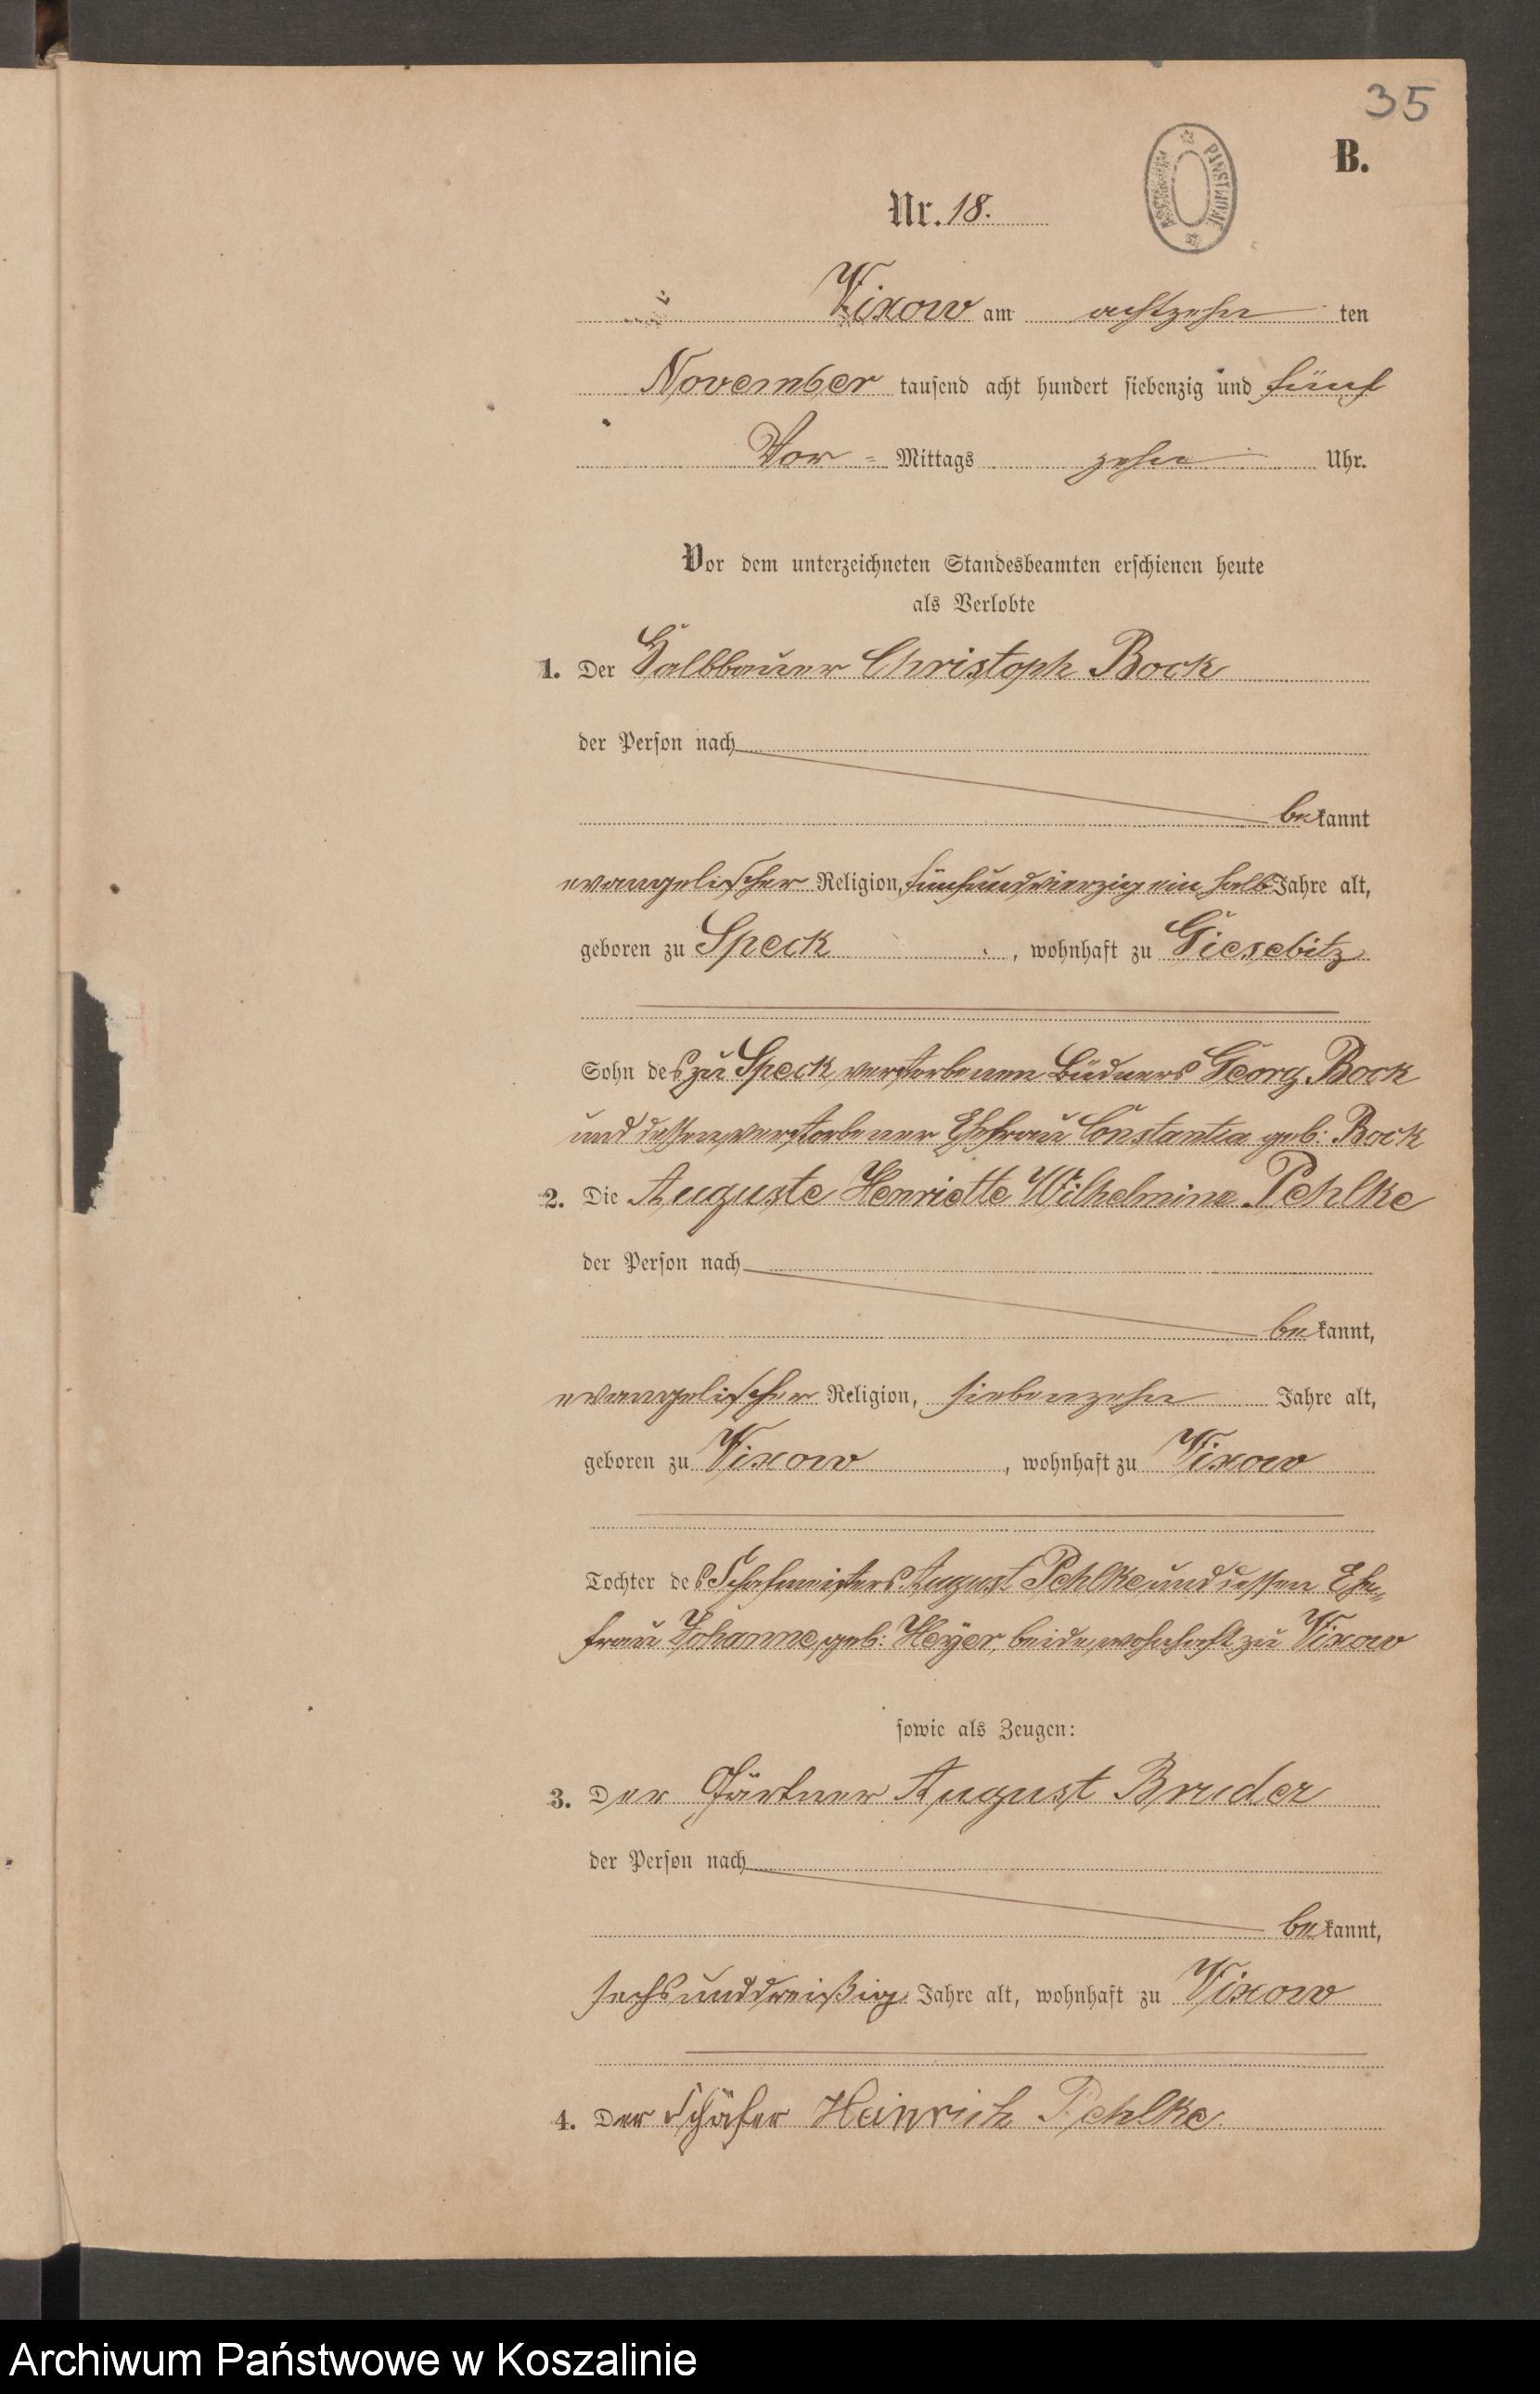 35
B.
PAŃSTWOWE
Nr. 18.
Vixow am achtzehn ten
November tausend acht hundert siebenzig und fünf
Vor - Mittags zehn Uhr.
Vor dem unterzeichneten Standesbeamten erschienen heute
als Verlobte
1. Der Halbbauer Christoph Bock
der Person nach
bekannt
evangelischer Religion, fünfundvierzig ein halb Jahre alt,
geboren zu Speck, wohnhaft zu Giesebitz
Sohn des zu Speck verstorbenen Büdners Georg Bock
und dessen verstorbener Ehefrau Constantia geb: Bock
2. Die Auguste Henriette Wilhelmine Pehlke
der Person nach
bekannt,
evangelischer Religion, siebenzehn Jahre alt,
geboren zu Vixow, wohnhaft zu Vixow
Tochter des Schafmeisters August Pehlke und dessen Ehe-
frau Johanne, geb: Heyer, beide wohnhaft zu Vixow
sowie als Zeugen:
3. Der Gärtner August Bruder
der Person nach
bekannt,
sechsunddreißig Jahre alt, wohnhaft zu Vixow
4. Der Schäfer Heinrich Pehlke.
Archiwum Państwowe w Koszalinie